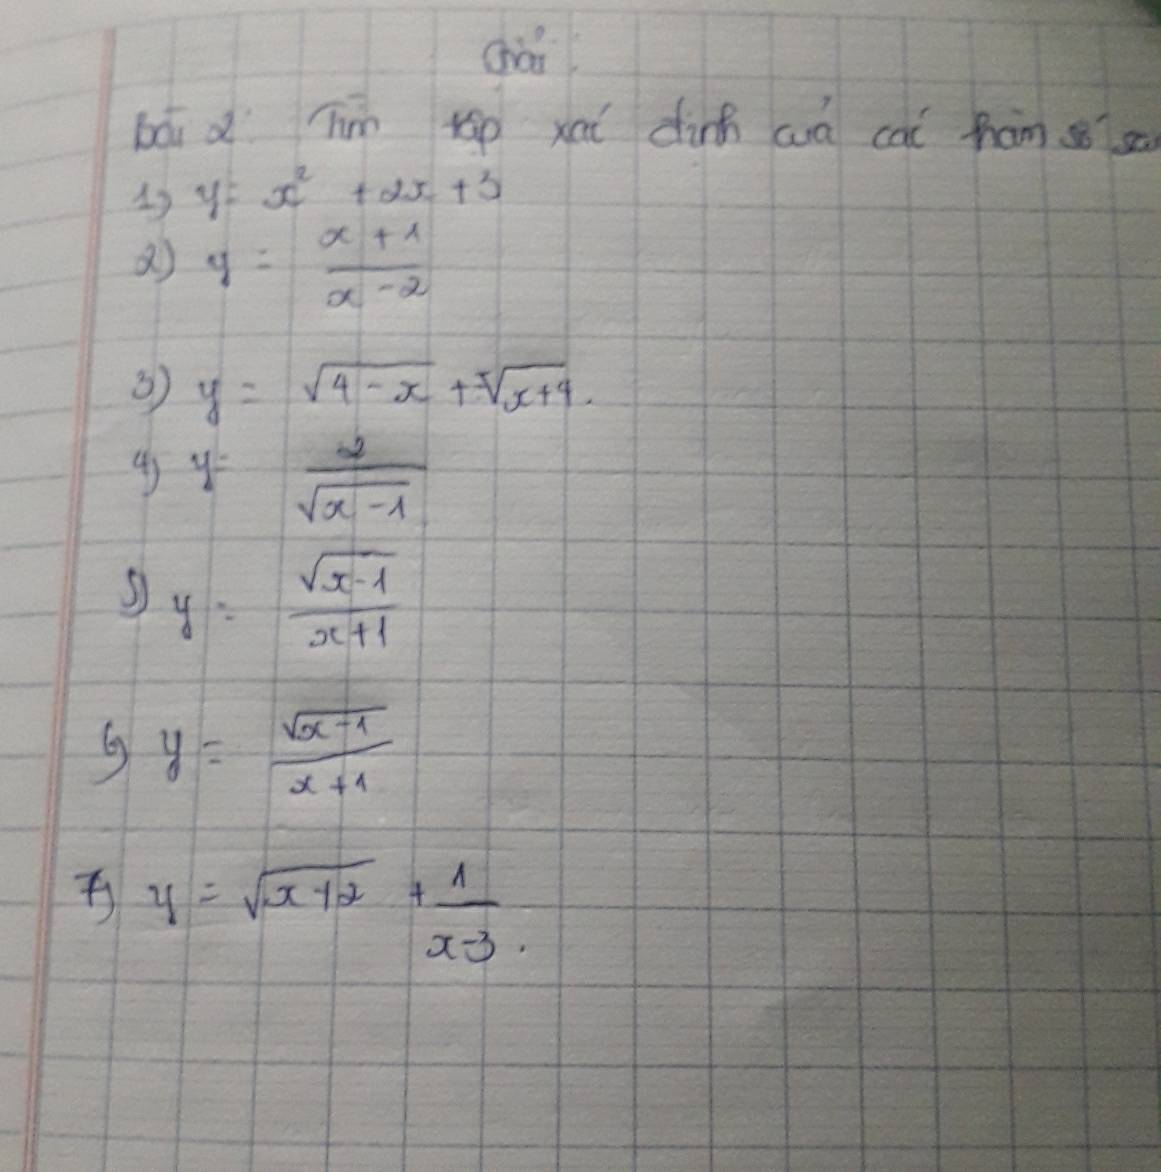 Giải:
Bài 2: Tìm tập xác định của các hàm số sau
1) y = x² + 2x + 3
2) y = (x + 1)/(x - 2)
3) y = √(4 - x) + √(x+4).
4) y = 2/√(x - 1)
5) y = √(x - 1)/(x+1)
6) y = √(x - 1)/(x + 1)
7) y = √(x+2) + 1/(x-3).